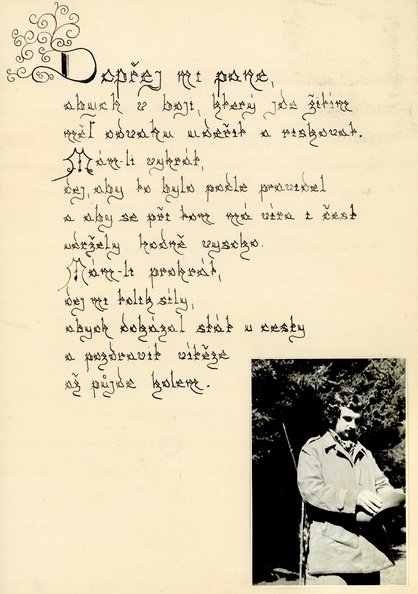 Dopřej mi pane,
abych v boji, který jde žitím
měl odvahu udeřit a riskovat.
Mám-li vyhrát,
dej, aby to bylo podle pravidel
a aby se při tom má víra i čest
udržely hodně vysoko.
Mám-li prohrát,
dej mi tolik síly,
abych dokázal stát u cesty
a pozdravit vítěze
až půjde kolem.